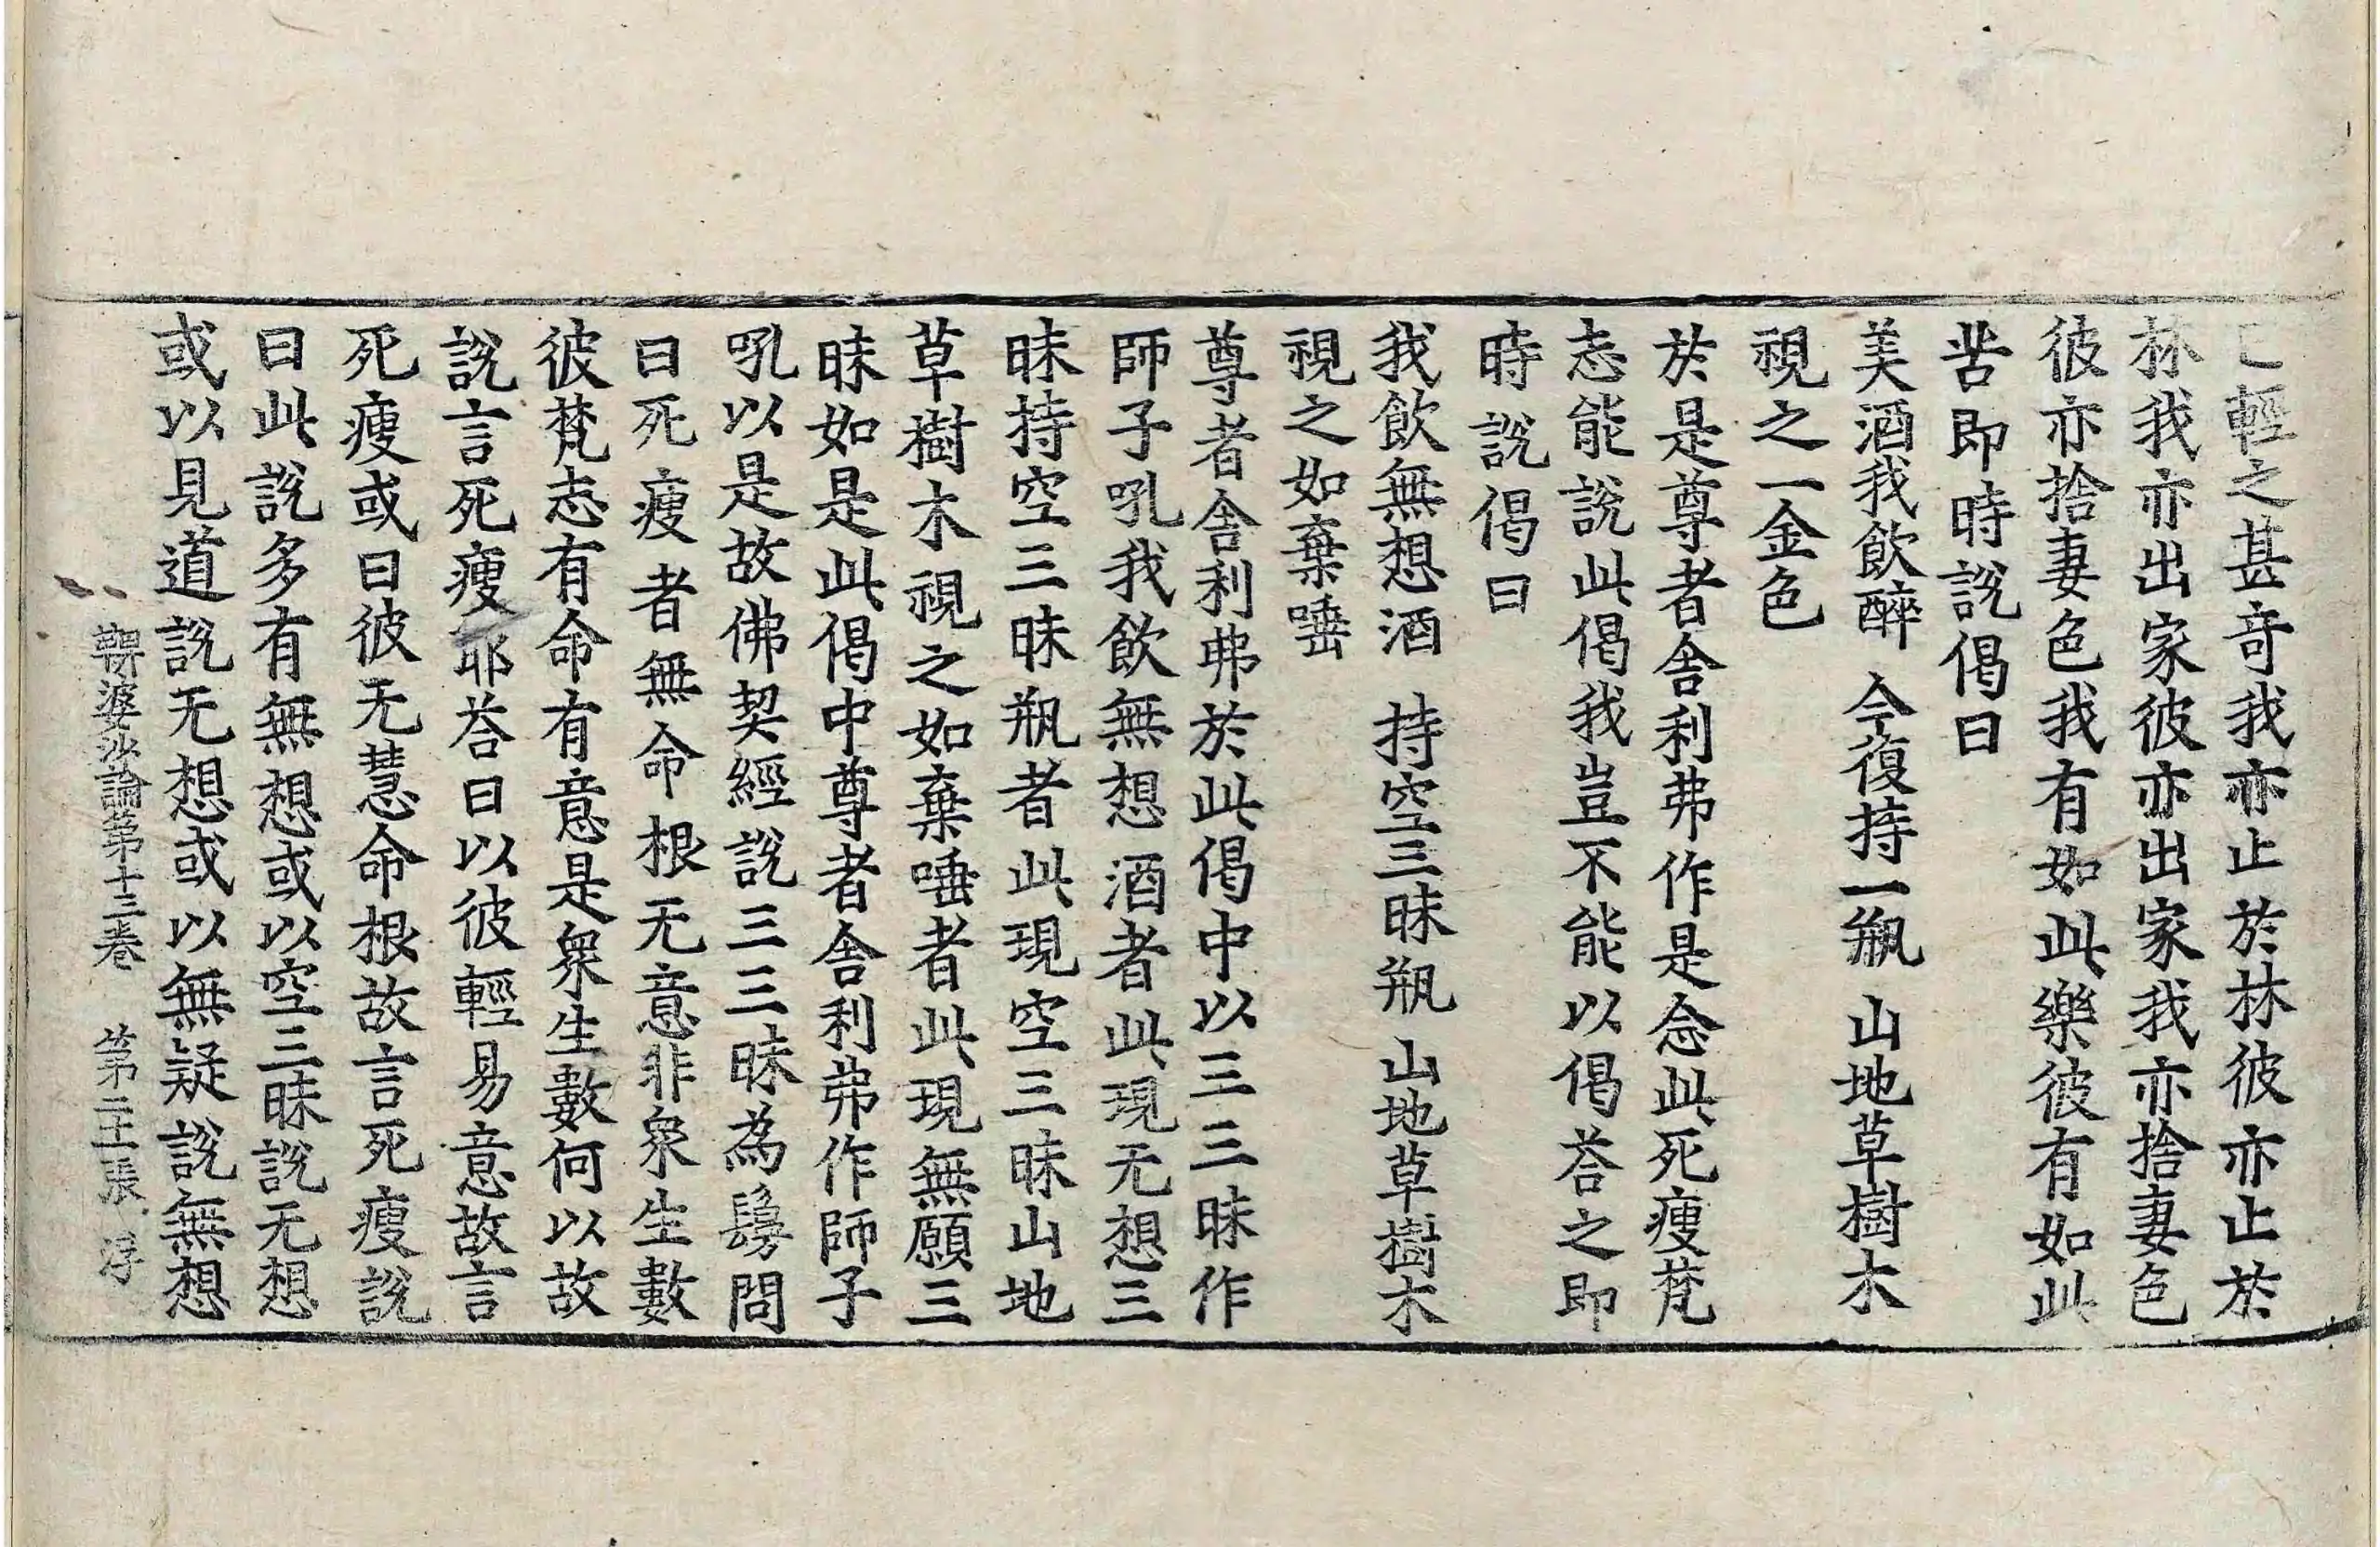 已輕之甚奇我亦止於林彼亦止於
林我亦出家彼亦出家我亦捨妻色
彼亦捨妻色我有如此樂彼有如此
苦即時說偈曰
美酒我飲醉 今復持一瓶 山地草樹木
視之一金色
於是尊者舍利弗作是念此死瘦梵
志能說此偈我豈不能以偈荅之即
時說偈曰
我飲無想酒 持空三昧瓶 山地草樹木
視之如棄唾
尊者舍利弗於此偈中以三三昧作
師子吼我飲無想酒者此現无想三
昧持空三昧瓶者此現空三昧山地
草樹木視之如棄唾者此現無願三
昧如是此偈中尊者舍利弗作師子
吼以是故佛契經說三三昧為鬘問
曰死瘦者無命根无意非衆生數
彼梵志有命有意是衆生數何以故
說言死瘦耶荅曰以彼輕易意故言
死瘦或曰彼无慧命根故言死瘦說
曰此說多有無想或以空三昧說无想
或以見道說无想或以無疑說無想
鞞婆沙論第十三卷 第二十張 浮